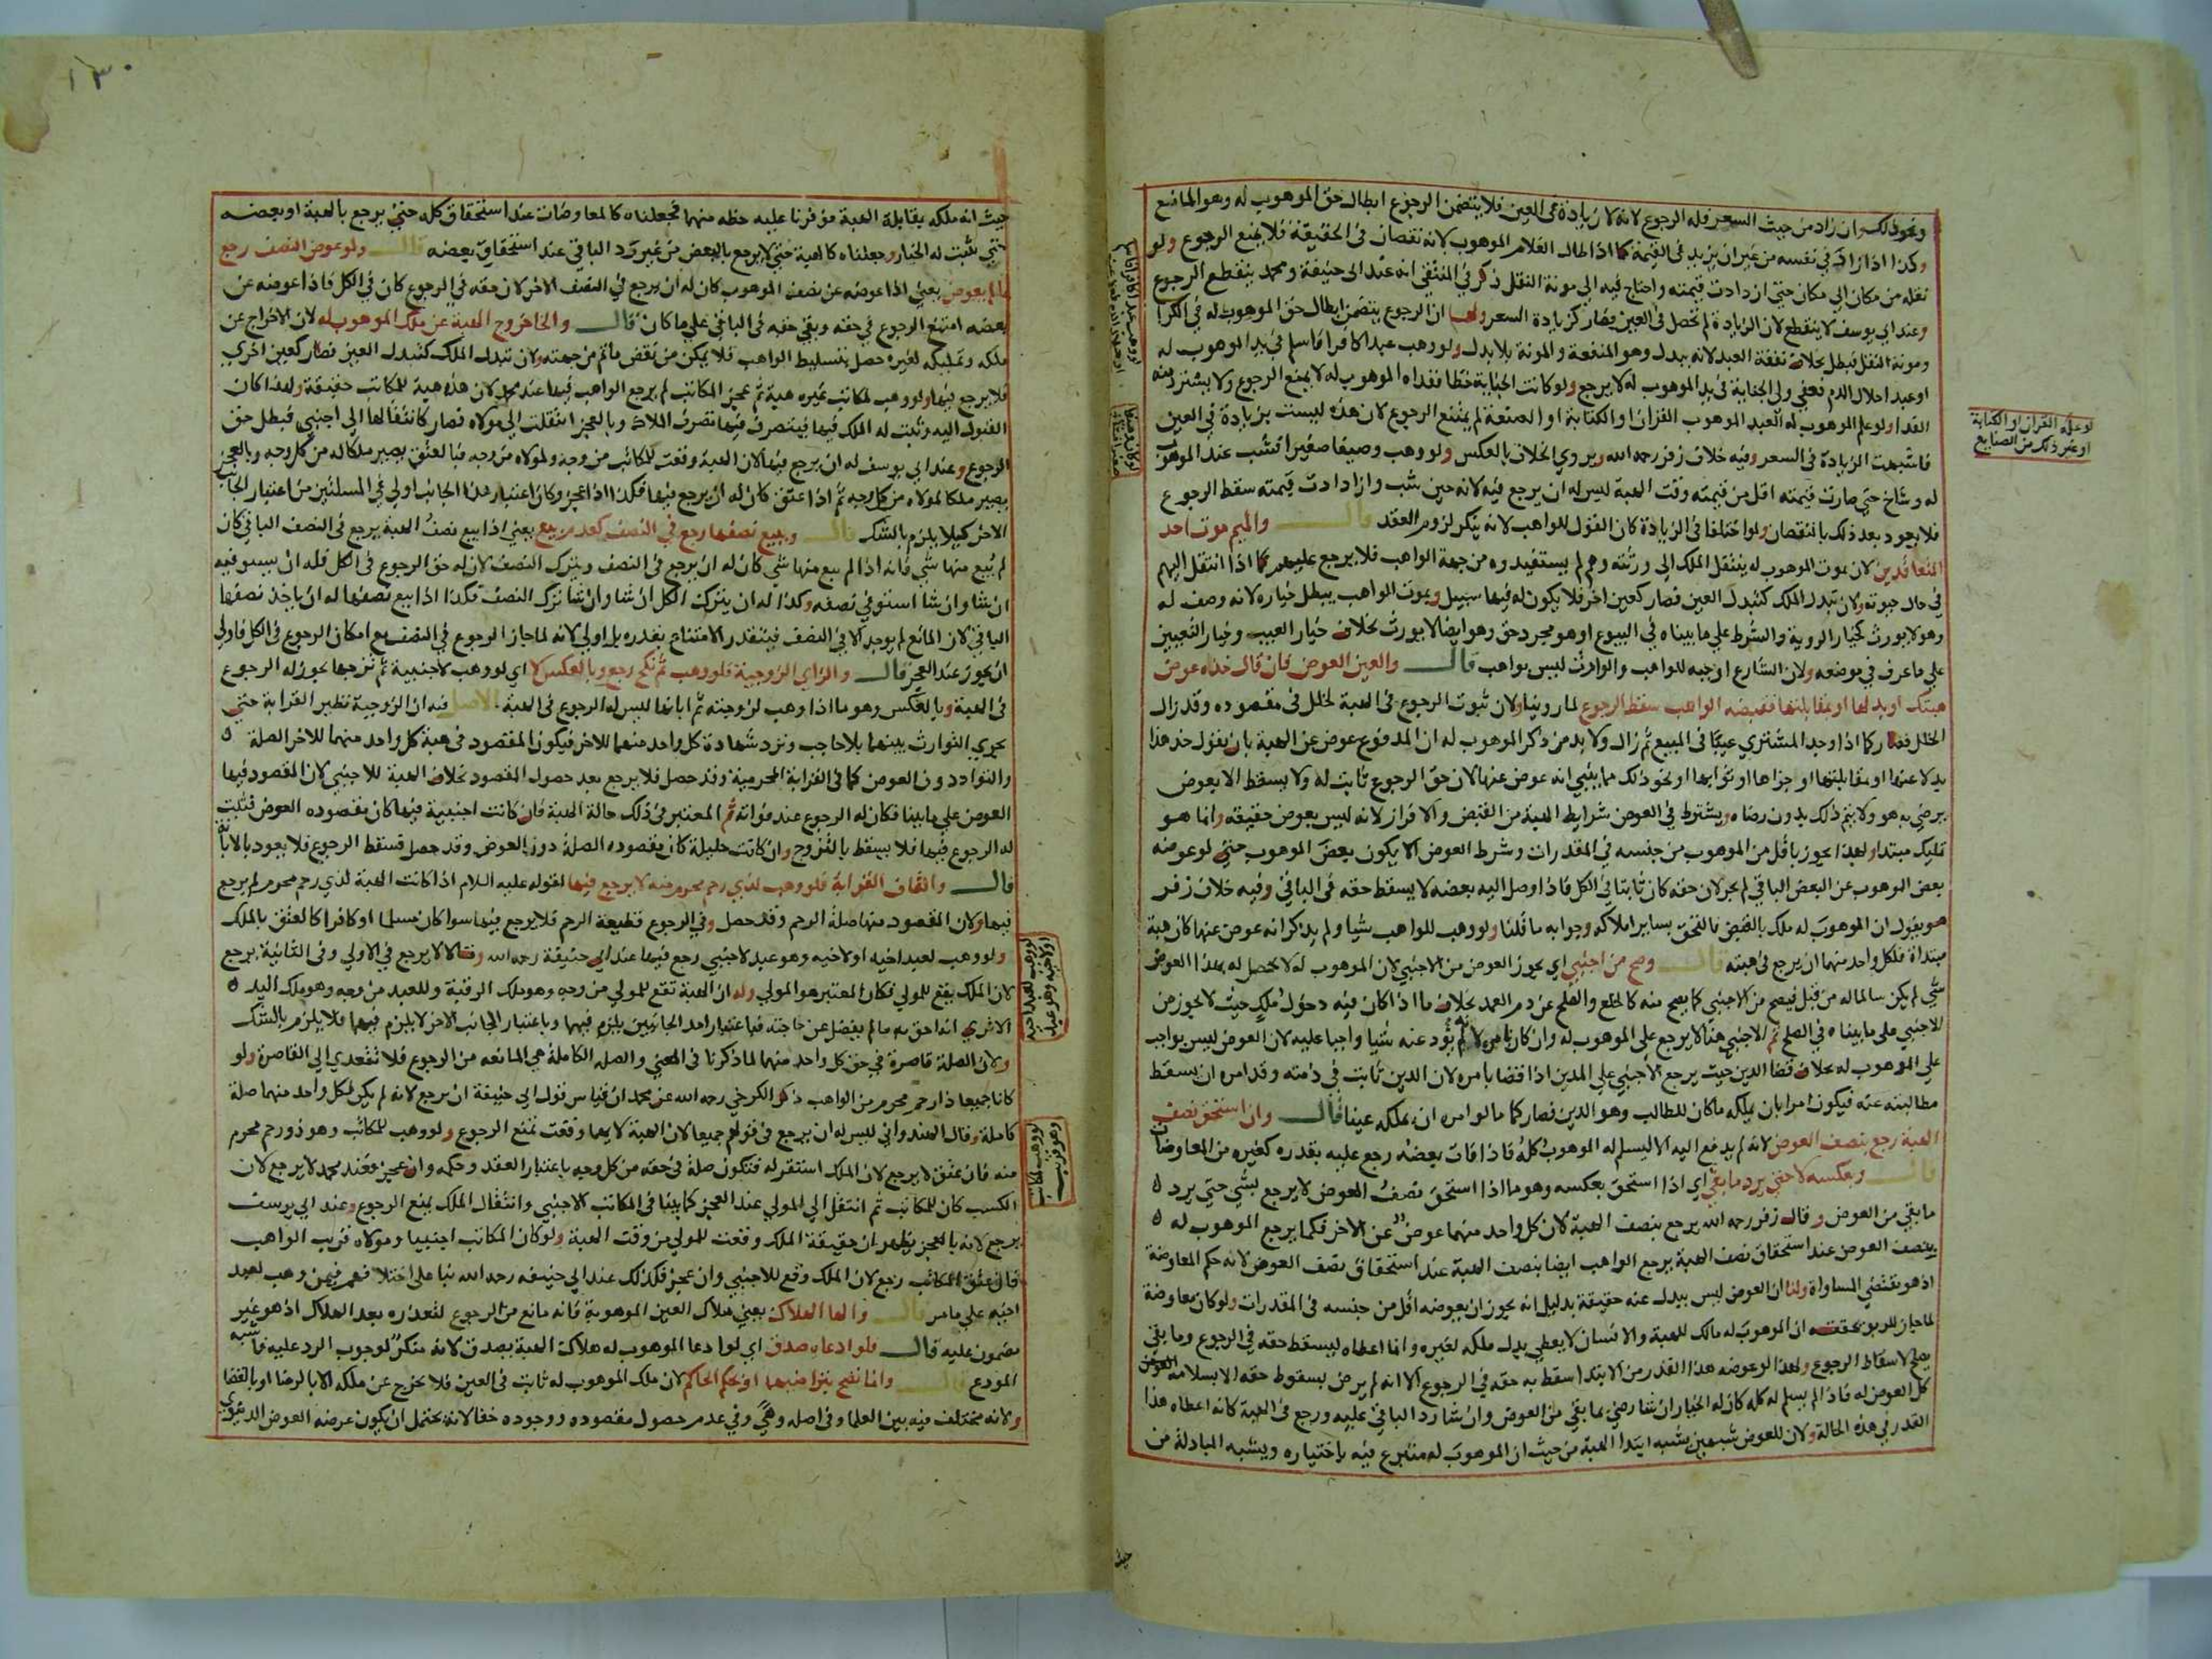 ونحو ذلك وان زاد من حيث السعر فله الرجوع لانه لا زيادة في العين فلا يتضمن الرجوع ابطال حق الموهوب له وهو المانع
وكذا اذا زاد في نفسه من غير ان يزيد في القيمة كما اذا طال الغلام الموهوب لانه نقصان في الحقيقة فلا يمنع الرجوع ولو
نقله من مكان الي مكان حتي ازدادت قيمته واحتاج فيه الي مونة النقل ذكر في المنتقي انه عند ابي حنيفة ومحمد ينقطع الرجوع
وعند ابي يوسف لا ينقطع لان الزيادة لم تحصل في العين فصار كزيادة السعر ولهما ان الرجوع يتضمن ابطال حق الموهوب له في الكرا
ومونة النقل فبطل بخلاف نفقة العبد لانه ببدل وهو المنفعة والمونة بلا بدل ولو وهب عبدا كافرا فاسلم في يد الموهوب له
او عبدا حلال الدم فعفي ولي الجناية في يد الموهوب له لا يرجع ولو كانت الجناية خطا ففداه الموهوب له لا يمنع الرجوع ولا يسترد منه
الفدا ولو علم الموهوب له العبد الموهوب القران او الكتابة او الصنعة لم يمتنع الرجوع لان هذه ليست بزيادة في العين
فاشبهت الزيادة في السعر وفيه خلاف زفر رحمه الله ويروي الخلاف بالعكس ولو وهب وصيفا صغيرا فشب عند الموهوب
له وشاخ حتي صارت قيمته اقل من قيمته وقت الهبة ليس له ان يرجع فيه لانه حين شب وازدادت قيمته سقط الرجوع
فلا يعود بعد ذلك بالنقصان ولو اختلفا في الزيادة كان القول للواهب لانه ينكر لزوم العقد قال والميم موت احد
المتعاقدين لان بموت الموهوب له ينتقل الملك الي ورثته وهم لم يستفيدوه من جهة الواهب فلا يرجع عليهم كما اذا انتقل اليهم
في حال حيوته ولان تبدل الملك كتبدل العين فصار كعين اخر فلا يكون له فيها سبيل وبموت الواهب يبطل خياره لانه وصف له
وهو لا يورث كخيار الروية والشرط علي ما بيناه في البيوع او هو مجرد حق وهو ايضا لا يورث بخلاف خيار العيب وخيار التعيين
علي ما عرف في موضعه ولان الشارع اوجبه للواهب والوارث ليس بواهب قال والعين العوض فان قال خذه عوض
هبتك او بدلها او بمقابلتها فقبضه الواهب سقط الرجوع لما روينا ولان ثبوت الرجوع في الهبة لخلل في مقصوده وقد زال
الخلل فصار كما اذا وجد المشتري عيبا في المبيع ثم زال ولا بد من ذكر الموهوب له ان المدفوع عوض عن الهبة بان يقول خذ هذا
بدلا عنها او بمقابلتها او جزاها او ثوابها او نحو ذلك مما ينبي انه عوض عنها لان حق الرجوع ثابت له ولا يسقط الا بعوض
يرضي به هو ولا يتم ذلك بدون رضاه ويشترط في العوض شرايط الهبة من القبض والافراز لانه ليس بعوض حقيقة وانما هو
تمليك مبتدا ولهذا يجوز باقل من الموهوب من جنسه في المقدرات وشرط العوض الا يكون بعض الموهوب حتي لو عوضه
بعض الموهوب عن البعض الباقي لم يجز لان حقه كان ثابتا في الكل فاذا وصل اليه بعضه لا يسقط حقه في الباقي وفيه خلاف زفر
هو يقول ان الموهوب له ملك بالقبض فالتحق بساير املاكه وجوابه ما قلنا ولو وهب للواهب شيا ولم يذكر انه عوض عنها كان هبة
مبتداة فلكل واحد منهما ان يرجع في هبته قال وصح من اجنبي اي يجوز العوض من الاجنبي لان الموهوب له لا يحصل له بهذا العوض
شي لم يكن سالما له من قبل فيصح من الاجنبي كما يصح منه كالخلع والصلح عن دم العمد بخلاف ما اذا كان فيه دخول ملك حيث لا يجوز من
الاجنبي علي ما بيناه في الصلح ثم الاجنبي هنا لا يرجع علي الموهوب له وان كان بامره لانه لم يؤد عنه شيا واجبا عليه لان العوض ليس بواجب
علي الموهوب له بخلاف قضا الدين حيث يرجع الاجنبي علي المدين اذا قضا بامره لان الدين ثابت في ذمته وقد امره ان يسقط
مطالبته عنه فيكون امرا بان يملكه ما كان للطالب وهو الدين فصار كما لو امره ان يملكه عينا قال وان استحق نصف
الهبة رجع بنصف العوض لانه لم يدفع اليه الا ليسلم له الموهوب كله فاذا فات بعضه رجع عليه بقدره كغيره من المعاوضات
قال وبعكسه لا حتي يرد ما بقي اي اذا استحق بعكسه وهو ما اذا استحق نصف العوض لا يرجع بشي حتي يرد
ما بقي من العوض وقال زفر رحمه الله يرجع بنصف الهبة لان كل واحد منهما عوض عن الاخر فكما يرجع الموهوب له
بنصف العوض عند استحقاق نصف الهبة يرجع الواهب ايضا بنصف الهبة عند استحقاق نصف العوض لانه حكم المعاوضة
اذ هو يقتضي المساواة ولنا ان العوض ليس ببدل عنه حقيقة بدليل انه يجوز ان يعوضه اقل من جنسه في المقدرات ولو كان معاوضة
لما جاز للربو تحققه ان الموهوب له مالك للهبة والانسان لا يعطي بدل ملكه لغيره وانما اعطاه ليسقط حقه في الرجوع وما بقي
يصلح لاسقاط الرجوع ولهذا لو عوضه هذا القدر من الابتدا سقط به حقه في الرجوع الا انه لم يرض بسقوط حقه الا بسلامة العوض
كل العوض له فاذا لم يسلم له كله كان له الخيار ان شا رضي بما بقي من العوض وان شا رد الباقي عليه ورجع في الهبة كانه اعطاه هذا
القدر في هذه الحالة ولان للعوض شبهين يشبه ابتدا الهبة من حيث ان الموهوب له متبرع فيه باختياره ويشبه المبادلة من
حيث
لو علمه القران او الكتابة
او غير ذلك من الصنايع
١٣٠
حيث انه ملكه بمقابلة الهبة فوفرنا عليه حظه منهما فجعلناه كالمعاوضات عند استحقاق كله حتي يرجع بالهبة او بعضه
حتي يثبت له الخيار وجعلناه كالهبة حتي لا يرجع بالبعض من غير رد الباقي عند استحقاق بعضه قال ولو عوض النصف رجع
بما لم يعوض يعني اذا عوضه عن نصف الموهوب كان له ان يرجع في النصف الاخر لان حقه في الرجوع كان في الكل فاذا عوضه عن
بعضه امتنع الرجوع في حقه وبقي حقه في الباقي علي ما كان قال والخا خروج الهبة عن ملك الموهوب له لان الاخراج عن
ملكه وتمليكه لغيره حصل بتسليط الواهب فلا يمكن من نقض ما تم من جهته ولان تبدل الملك كتبدل العين فصار كعين اخري
فلا يرجع فيها ولو وهب لمكاتب غيره هبة ثم عجز المكاتب لم يرجع الواهب فيها عند محمد لان هذه هبة للمكاتب حقيقة ولهذا كان
القبول اليه وثبت له الملك فيها فيتصرف فيها تصرف الملاك وبالعجز انتقلت الي مولاه فصار كانتقالها الي اجنبي فبطل حق
الرجوع وعند ابي يوسف له ان يرجع فيها لان الهبة وقعت للمكاتب من وجه ولمولاه من وجه فبالعتق يصير ملكا له من كل وجه وبالعجز
يصير ملكا لمولاه من كل وجه ثم اذا عتق كان له ان يرجع فيها فكذا اذا عجز وكان اعتبار هذا الجانب اولي في المسئلتين من اعتبار الجانب
الاخر كيلا يلزم بالشك قال وببيع نصفها رجع في النصف كعدم بيع يعني اذا بيع نصف الهبة يرجع في النصف الباقي كان
لم يبع منها شي فانه اذا لم يبع منها شي كان له ان يرجع في النصف ويترك النصف لان له حق الرجوع في الكل فله ان يستوفيه
ان شا وان شا استوفي نصفه وكذا له ان يترك الكل ان شا وان شا ترك النصف فكذا اذا بيع نصفها له ان ياخذ نصفها
الباقي لان المانع لم يوجد الا في النصف فيتقدر الامتناع بقدره بل اولي لانه لما جاز الرجوع في النصف مع امكان الرجوع في الكل فاولي
ان يجوز عند العجز قال والزاي الزوجية فلو وهب ثم نكح رجع وبالعكس لا اي لو وهب لاجنبية ثم تزوجها يجوز له الرجوع
في الهبة وبالعكس وهو ما اذا وهب لزوجته ثم ابانها ليس له الرجوع في الهبة الاصل فيه ان الزوجية نظير القرابة حتي
يجري التوارث بينهما بلا حاجب وترد شهادة كل واحد منهما للاخر فيكون المقصود في هبة كل واحد منهما للاخر الصلة
والتوادد دون العوض كما في القرابة المحرمية وقد حصل فلا يرجع بعد حصول المقصود بخلاف الهبة للاجنبي لان المقصود فيها
العوض علي ما بينا فكان له الرجوع عند فواته ثم المعتبر في ذلك حالة الهبة فان كانت اجنبية فيها كان مقصوده العوض فثبت
له الرجوع فيها فلا يسقط بالتزوج وان كانت حليلة كان مقصوده الصلة دون العوض وقد حصل فسقط الرجوع فلا يعود بالابانة
قال والقاف القرابة فلو وهب لذي رحم محرم منه لا يرجع فيها لقوله عليه السلام اذا كانت الهبة لذي رحم محرم لم يرجع
فيها ولان المقصود منها صلة الرحم وقد حصل وفي الرجوع قطيعة الرحم فلا يرجع فيها سوا كان مسلما او كافرا كالعتق بالملك
ولو وهب لعبد اخيه او لاخيه وهو عبد لاجنبي رجع فيها عند ابي حنيفة رحمه الله وقالا لا يرجع في الاولي وفي الثانية يرجع
لان الملك يقع للمولي فكان المعتبر هو المولي وله ان الهبة تقع للمولي من وجه وهو ملك الرقبة وللعبد من وجه وهو ملك اليد
الا تري انه احق به ما لم يفضل عن حاجته فباعتبار احد الجانبين يلزم فيهما وباعتبار الجانب الاخر لا يلزم فيهما فلا يلزم بالشك
ولان الصلة قاصرة في حق كل واحد منهما لما ذكرنا في المعني والصلة الكاملة هي المانعة من الرجوع فلا تتعدي الي القاصرة ولو
كانا جميعا ذا رحم محرم من الواهب ذكر الكرخي رحمه الله عن محمد ان قياس قول ابي حنيفة ان يرجع لانه لم يكن لكل واحد منهما صلة
كاملة وقال الهندواني ليس له ان يرجع في قولهم جميعا لان الهبة لايهما وقعت تمنع الرجوع ولو وهب للمكاتب وهو ذو رحم محرم
منه فان عتق لا يرجع لان الملك استقر له فتكون صلة في حقه من كل وجه باعتبار العقد وحكمه وان عجز فعند محمد لا يرجع لان
الكسب كان للمكاتب ثم انتقل الي المولي عند العجز كما بينا في المكاتب الاجنبي وانتقال الملك يمنع الرجوع وعند ابي يوسف
يرجع لانه بالعجز يظهر ان حقيقة الملك وقعت للمولي من وقت الهبة ولو كان المكاتب اجنبيا ومولاه قريب الواهب
فان عتق المكاتب رجع لان الملك وقع للاجنبي وان عجز فكذلك عند ابي حنيفة رحمه الله بنا علي اختلافهم فيمن وهب لعبد
اخيه علي ما مر قال والها الهلاك يعني هلاك العين الموهوبة فانه مانع من الرجوع لتعذره بعد الهلاك اذ هو غير
مضمون عليه قال فلو ادعاه صدق اي لو ادعا الموهوب له هلاك الهبة يصدق لانه منكر لوجوب الرد عليه فاشبه
المودع قال وانما تصح بتراضيهما او بحكم الحاكم لان ملك الموهوب له ثابت في العين فلا يخرج عن ملكه الا بالرضا او بالقضا
ولانه مختلف فيه بين العلما وفي اصله وهي وفي عدم حصول مقصوده ووجوده خفا لانه يحتمل ان يكون غرضه العوض الدنيوي
لو وهب لعبد اخيه
او لاخيه وهو عبد
لو وهب لمكاتب
وهو قريب